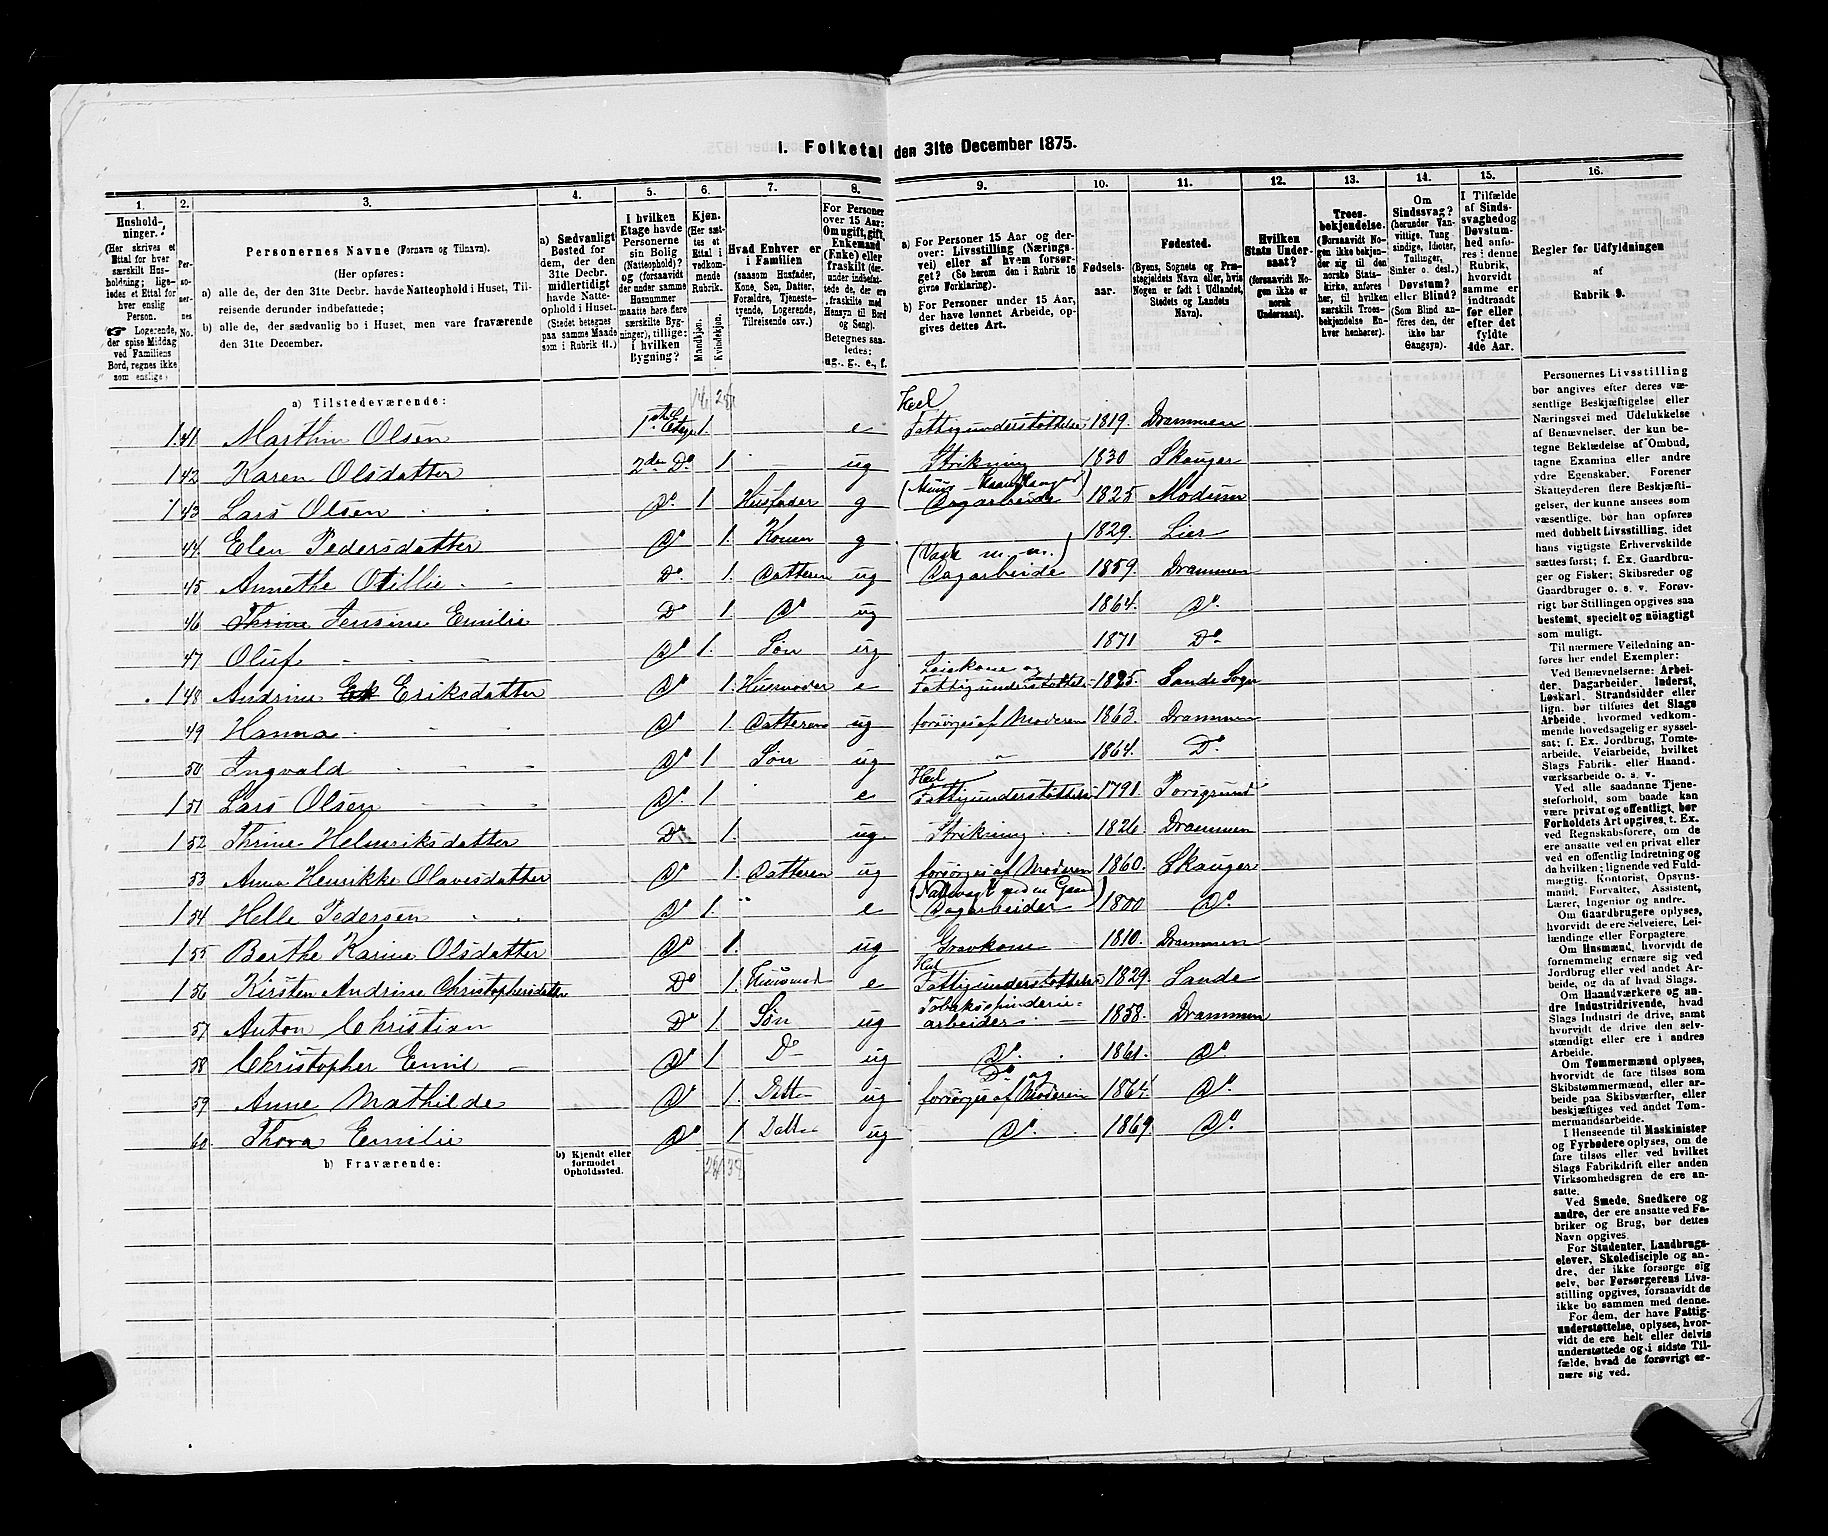 I. Folketal den 31te December 1875.
1. 2. 3. 4. 5. 6. 7. 8. 9. 10. 11. 12. 13. 14. 15. 16.
Hushold-
ninger.
(Her skrives et
Ettal for hver
særskilt Hus-
holdning; lige-
ledes et Ettal for
hver enslig
Person.
☞ Logerende,
der spise Middag
ved Familiens
Bord, regnes ikke
som enslige)
Per-
so-
ner-
nes
No.
Personernes Navne (Fornavn og Tilnavn).
(Her opføres:
a) alle de, der den 31te Decbr. havde Natteophold i Huset, Til-
reisende derunder indbefattede;
b) alle de, der sædvanlig bo i Huset, men vare fraværende
den 31te December.
a) Sædvanligt
Bosted for
dem, der den
31te Decbr.
midlertidigt
havde Natte-
ophold i Huset.
(Stedet betegnes
paa samme Maade
som i Rubrik 11.)
I hvilken
Etage havde
Personerne
sin Bolig
(Natteophold)?
og (forsaavidt
der under samme
Husnummer
maatte høre flere
særskilte Byg-
ninger), tillige:
i hvilken
Bygning?
Kjøn.
(Her sæt-
tes et
Ettal i
vedkom-
mende
Rubrik.
Mandkjøn.
Kvindekjøn.
Hvad Enhver er
i Familien
(saasom Husfader,
Kone, Søn, Datter,
Forældre, Tjeneste-
tyende, Logerende,
Tilreisende osv.)
For Personer
over 15 Aar:
Om ugift, gift,
Enkemand
(Enke) eller
fraskilt (der-
under indbefat-
tede de, der ere
fraskilte med
Hensyn til Bord
og Seng).
Betegnes saa-
ledes:
ug., g., e., f.
a) For Personer 15 Aar og der-
over: Livsstilling (Nærings-
vei) eller af hvem forsør-
get? (Se herom den i Rubrik 16
givne Forklaring).
b) For Personer under 15 Aar,
der have lønnet Arbeide, op-
gives dettes Art.
Fødsels-
aar.
Fødested.
(Byens, Sognets og Præ-
stegjeldets Navn eller, hvis
Nogen er født i Udlandet,
Stedets og Landets
Navn).
Hvilken
Stats Under-
saat?
(forsaavidt No-
gen ikke er
norsk
Undersaat).
Troes-
bekjendelse.
(Forsaavidt No-
gen ikke bekjen-
der sig til den
norske Stats-
kirke, anføres
her, til hvilken
særskilt Troes-
bekjendelse En-
hver henhører).
Om
Sindssvag?
(herunder Van-
vittige, Tung
sindige, Idioter,
Tullinger,
Sinker o. desl.)
Døvstum?
eller Blind?
(Som Blind an-
føres den, der
ikke har
Gangsyn).
I Tilfælde
af Sinds-
svaghed og
Døvstum-
hed anfø-
res i denne
Rubrik,
hvorvidt
samme er
indtraadt
før eller
efter det
fyldte
4de Aar.
Regler for Udfyldningen
af
Rubrik 9.
a) Tilstedeværende:
1 41 Marthin Olsen 1ste Etage 1. e Hel Fattigunderstøttelse 1819. Drammen
1 42 Karen Olsdatter 2den Do 1. ug Strikning 1830 Skauger
1 43 Lars Olsen Do. 1 Husfader g (Muur Haandlanger) Dagarbeide 1825 Modum
44 Elen Pedersdatter Do 1. Konen g 1829. Lier
45 Annethe Otillie Do. 1. Datteren ug (Vask m. m.) Dagarbeide 1859. Drammen
46 Thrine Jensine Emilie Do 1. Do ug 1864. Do.
47 Oluf Do 1. Søn ug 1871 Do
1 48 Andrine Eriksdatter Do 1. Husmoder e Leiekone og Fattigunderstøttelse 1825. Sande Sogn
49 Hanna Do 1. Datteren ug forsørges af Moderen 1863. Drammen
50 Ingvald Do 1. Søn ug " 1864. Do.
1 51 Lars Olsen Do. 1. e Hel Fattigunderstøttelse 1791. Porsgrund
1 52 Thrine Helmriksdatter Do 1. ug. Strikning 1826 Drammen
53 Anna Henrikke Olavesdatter Do 1. Datteren ug forsørges af Moderen 1860. Skauger
1 54 Helle Pedersen Do 1. " e (Nattevagt ved en Gaard) Dagarbeider 1800 Do.
1 55 Berthe Karine Olsdatter Do 1. ug Gravkone 1810. Drammen
1 56 Kirsten Andrine Christophersdatter Do 1. Husmod e Hel Fattigunderstøttelse 1829. Sande
57 Anton Christian Do 1. Søn ug Tobaksspinderie= arbeider 1858. Drammen
58 Christopher Emil Do 1 Do ug Do. 1861. Do
59 Anne Mathilde Do 1. Datt ug Do og forsørges af Moderen 1864. Do.
60 Thora Emilie Do 1. Datt ug Do. 1869. Do.
b) Fraværende:
b) Kjendt eller
formodet
Opholdssted.
Personernes Livsstilling
bør angives efter deres væ-
sentlige Beskjæftigelse eller
Næringsvei med Udelukkelse
af Benævnelser, der kun be-
tegne Beklædelse af Ombud,
tagne Examina eller andre
ydre Egenskaber. Forener
Skatteyderen flere Beskjæfti-
gelser, der kunne ansees som
væsentlige, bør han opføres
med dobbelt Livsstilling, idet
hans vigtigste Erhvervskilde
sættes først; f. Ex. Gaardbru-
ger og Fisker; Skibsreder og
Gaardbruger o. s. v. Forøv-
rigt bør Stillingen opgives saa
bestemt, specielt og nøiagtigt
som muligt.
Til nærmere Veiledning an-
føres her endel Exempler:
Ved Benævnelserne: Arbei-
der, Dagarbeider, Inderst,
Løskarl, Strandsidder eller
lign. bør tilføies det Slags
Arbeide, hvormed vedkom-
mende hovedsagelig er syssel-
sat; f. Ex. Jordbrug, Tomte-
arbeide, Veiarbeide, hvilket
Slags Fabrik- eller Haand-
værksarbeide o. s. v.
Ved alle saadanne Tjene-
steforhold, som baade kan
være privat og offentligt, bør
Forholdets Art opgives, t. Ex.
ved Regnskabsførere, om de
ere ansatte ved en privat eller
ved en offentlig Indretning og
da hvilken; lignende ved Fuld-
mægtig, Kontorist, Opsyns-
mand, Forvalter, Assistent,
Lærer, Ingeniør og andre.
Om Gaardbrugere oplyses,
hvorvidt de ere Selveiere, Lei-
lændinge eller Forpagtere.
Om Husmænd, hvorvidt de
fornemmelig ernære sig ved
Jordbrug eller ved andet Ar-
beide, og da af hvad Slags.
Om Haandværkere og an-
dre Industridrivende, hvad
Slags Industri de drive, samt
hvorvidt de drive den selv-
stændigt eller ere i andres
Arbeide.
Om Tømmermænd oplyses,
hvorvidt de fare tilsøs som
Skibstømmermænd, eller ar-
beide paa Skibsværfter, eller
beskjæftiges ved andet Tøm-
mermandsarbeide.
I Henseende til Maskinister
og Fyrbødere oplyses, om de
fare tilsøs eller ved hvilket
Slags Fabrikdrift eller anden
Virksomhedsgren de ere an-
satte.
Ved Smede, Snedkere og
andre, der ere ansatte ved Fa-
briker og Brug, bør dettes
Navn opgives.
For Studenter, Landbrugs-
elever, Skoledisciple og an-
dre, der ikke forsørge sig
selv, bør Forsørgerens Livs-
stilling opgives, forsaavidt de
ikke bo sammen med denne.
For dem, der have Fattig-
understøttelse, oplyses, hvor-
vidt de ere helt eller delvis
understøttede og i sidste Til-
fælde, hvad de forøvrigt er-
nære sig ved.